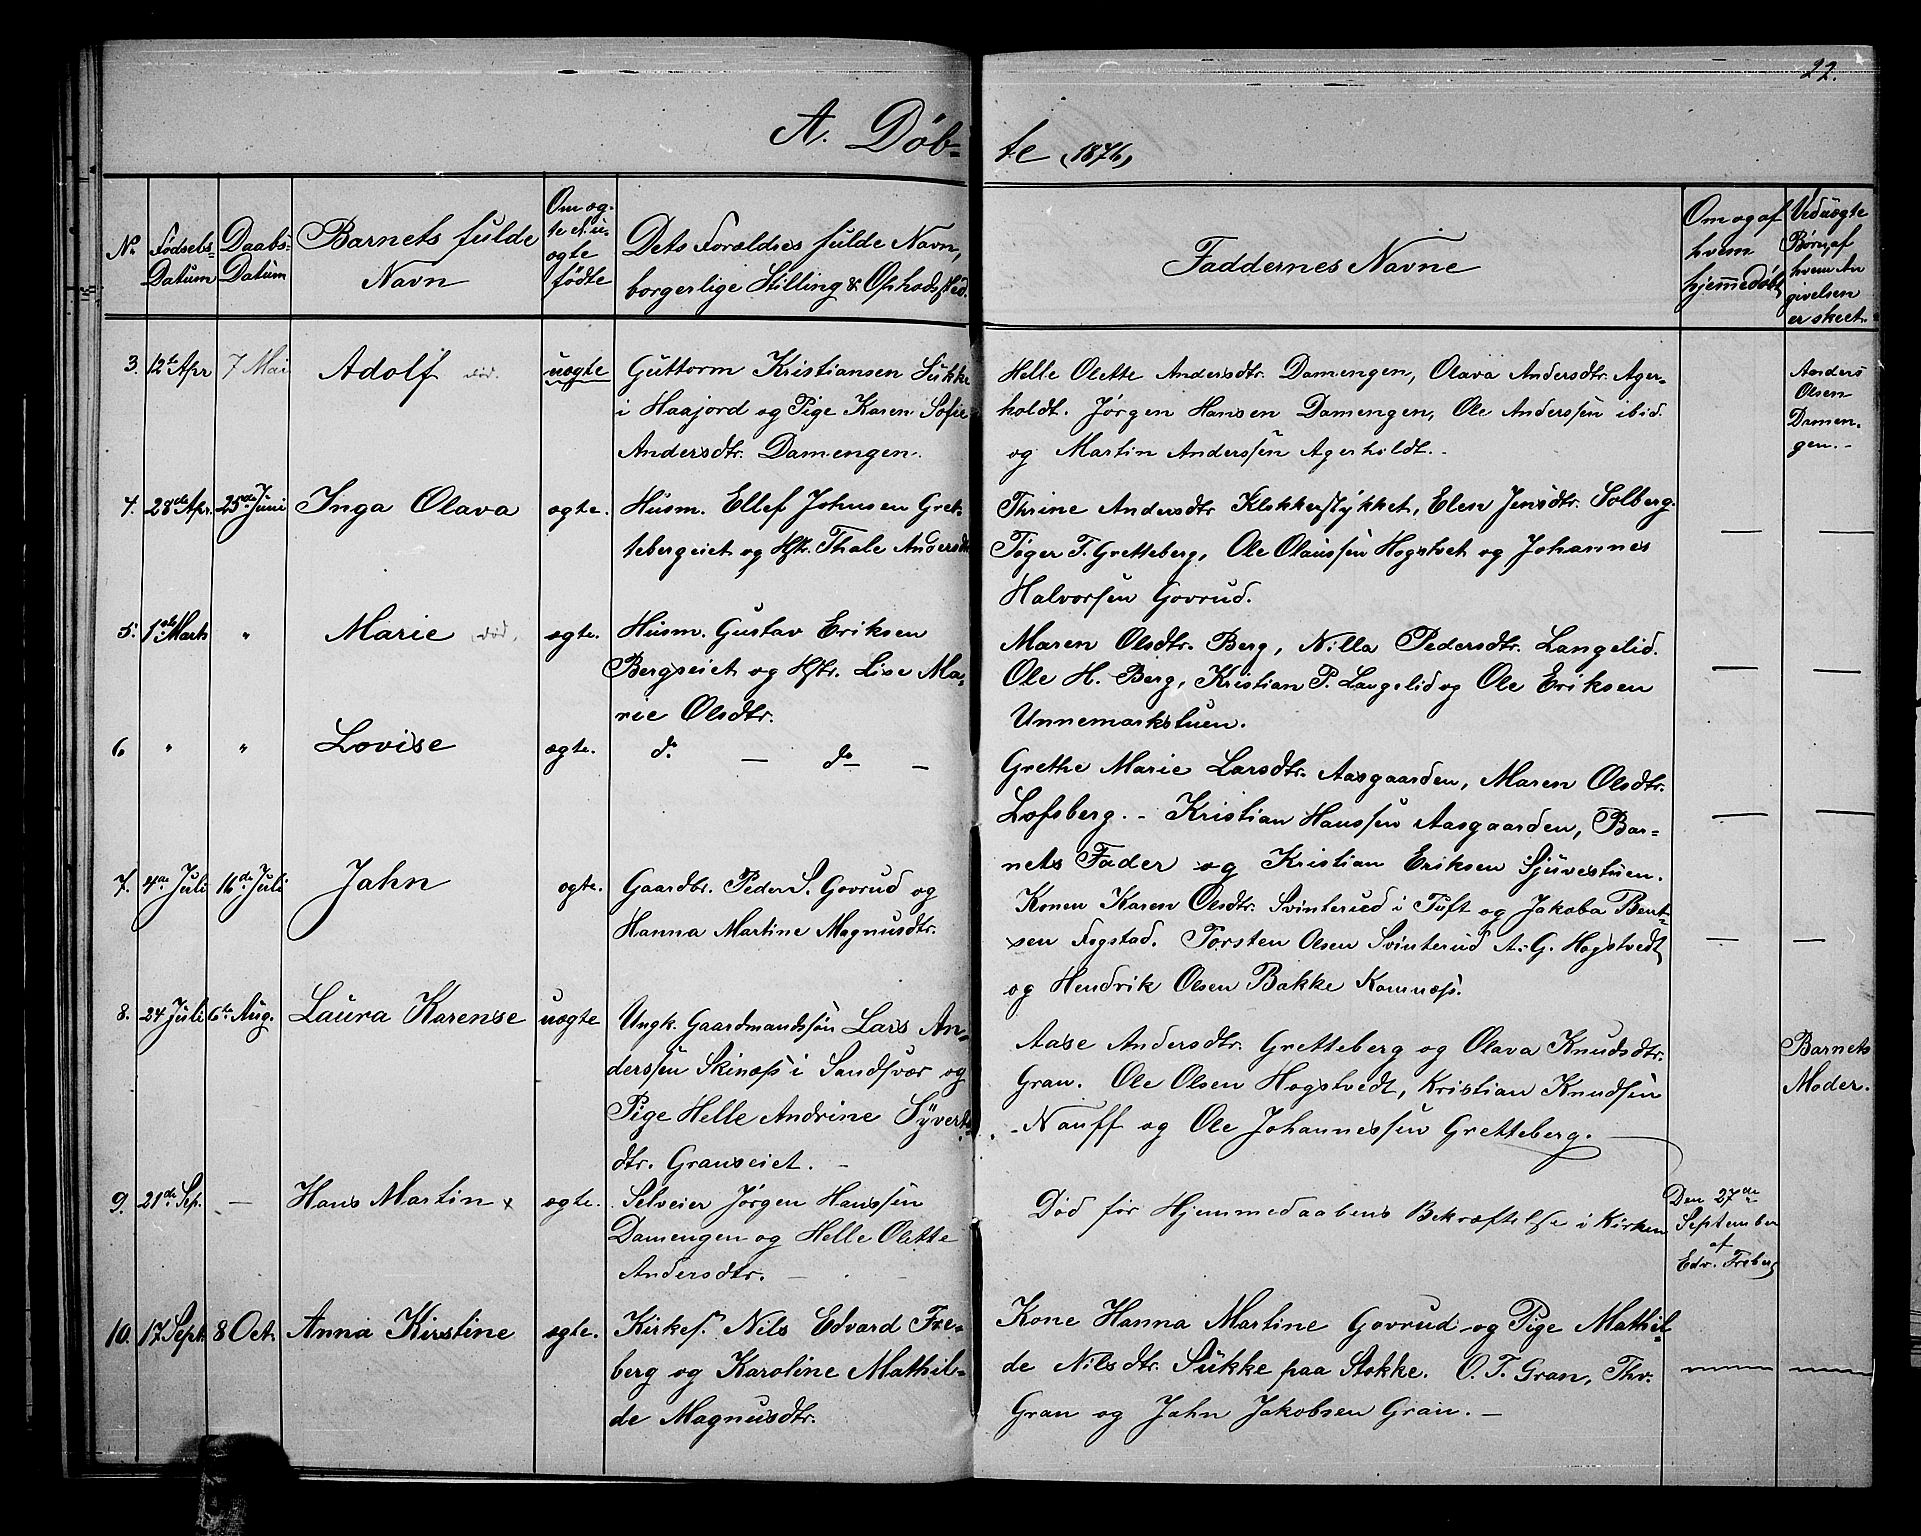 22.
A. Døb-
te (1876)
No
Fødsels-
Datum
Daabs-
Datum
Barnets fulde
Navn
Om æg-
te el. u-
ægte
fødte
Dets Forældres fulde Navn,
borgerlige Stilling & Opholdssted.
Faddernes Navne
Om og af
hvem
hjemmedøbt
Ved uægte
Børn, af
hvem An
givelsen
er skeet.
3. 12te Apr 7 Mai Adolf død. uægte Guttorm Kristiansen Sukke
i Haajord og Pige Karen Sofie
Andersdtr. Damengen.
Helle Olette Andersdtr. Damengen, Olava Andersdtr. Ager-
holdt. Jørgen Hansen Damengen, Ole Anderssen ibid.
og Martin Anderssen Agerholdt. -
Anders
Olsen
Damen-
gen. -
4. 28de Apr. 25de Juni Inga Olava ægte. Husm. Ellef Johnsen Gret-
tebergeiet og Hstr. Thale Andersdtr
Thrine Andersdtr Klokkerstykket, Elen Jensdtr. Solberg.
Tøger T. Gretteberg, Ole Olaussen Hogstvet og Johannes
Halvorsen Govrud.
5. 1ste Marts " Marie død. ægte. Husm. Gustav Eriksen
Bergseiet og Hstr. Lise Ma-
rie Olsdtr.
Maren Olsdtr. Berg, Nilla Pedersdtr. Langelid.
Ole H. Berg, Kristian P. Langelid og Ole Eriksen
Unnemarkstuen.
6 " " Lovise ægte. do — do —
Grethe Marie Larsdtr. Aasgaarden, Maren Olsdtr.
Lofsberg. - Kristian Hanssen Aasgaarden, Bar-
nets Fader og Kristian Eriksen Sjuvestuen.
7. 4de Juli 16de Juli Jahn ægte. Gaardbr. Peder S. Govrud og
Hanna Martine Magnusdtr.
Konen Karen Olsdtr. Svinterud i Tuft og Jakoba Bent-
sen Fogstad. Torsten Olsen Svinterud A. G. Hogstvedt
og Hendrik Olsen Bakke Komnæs.
8. 24 Juli 6te Aug. Laura Karense uægte Ungk. Gaardmandssøn Lars An-
derssen Skinæs i Sandsvær og
Pige Helle Andrine Syverts-
dtr. Granseiet. -
Aase Andersdtr. Gretteberg og Olava Knudsdtr.
Gran. Ole Olsen Hogstvedt, Kristian Knudsen
Nauff og Ole Johannessen Gretteberg.
Barnets
Moder.
9. 21de Sep. — Hans Martin x ægte. Selveier Jørgen Hanssen
Damengen og Helle Olette
Andersdtr. —
Død før Hjemmedaabens Bekræftelse i Kirken
Den 27de
September
af
Edv. Freberg
10. 17 Sept. 8 Oct. Anna Kirstine ægte. Kirkes. Nils Edvard Fre-
berg og Karoline Mathil-
de Magnusdtr.
Kone Hanna Martine Govrud og Pige Mathil-
de Nilsdtr. Sukke paa Stokke. O. T. Gran, Thv.
Gran og Jahn Jakobsen Gran. —